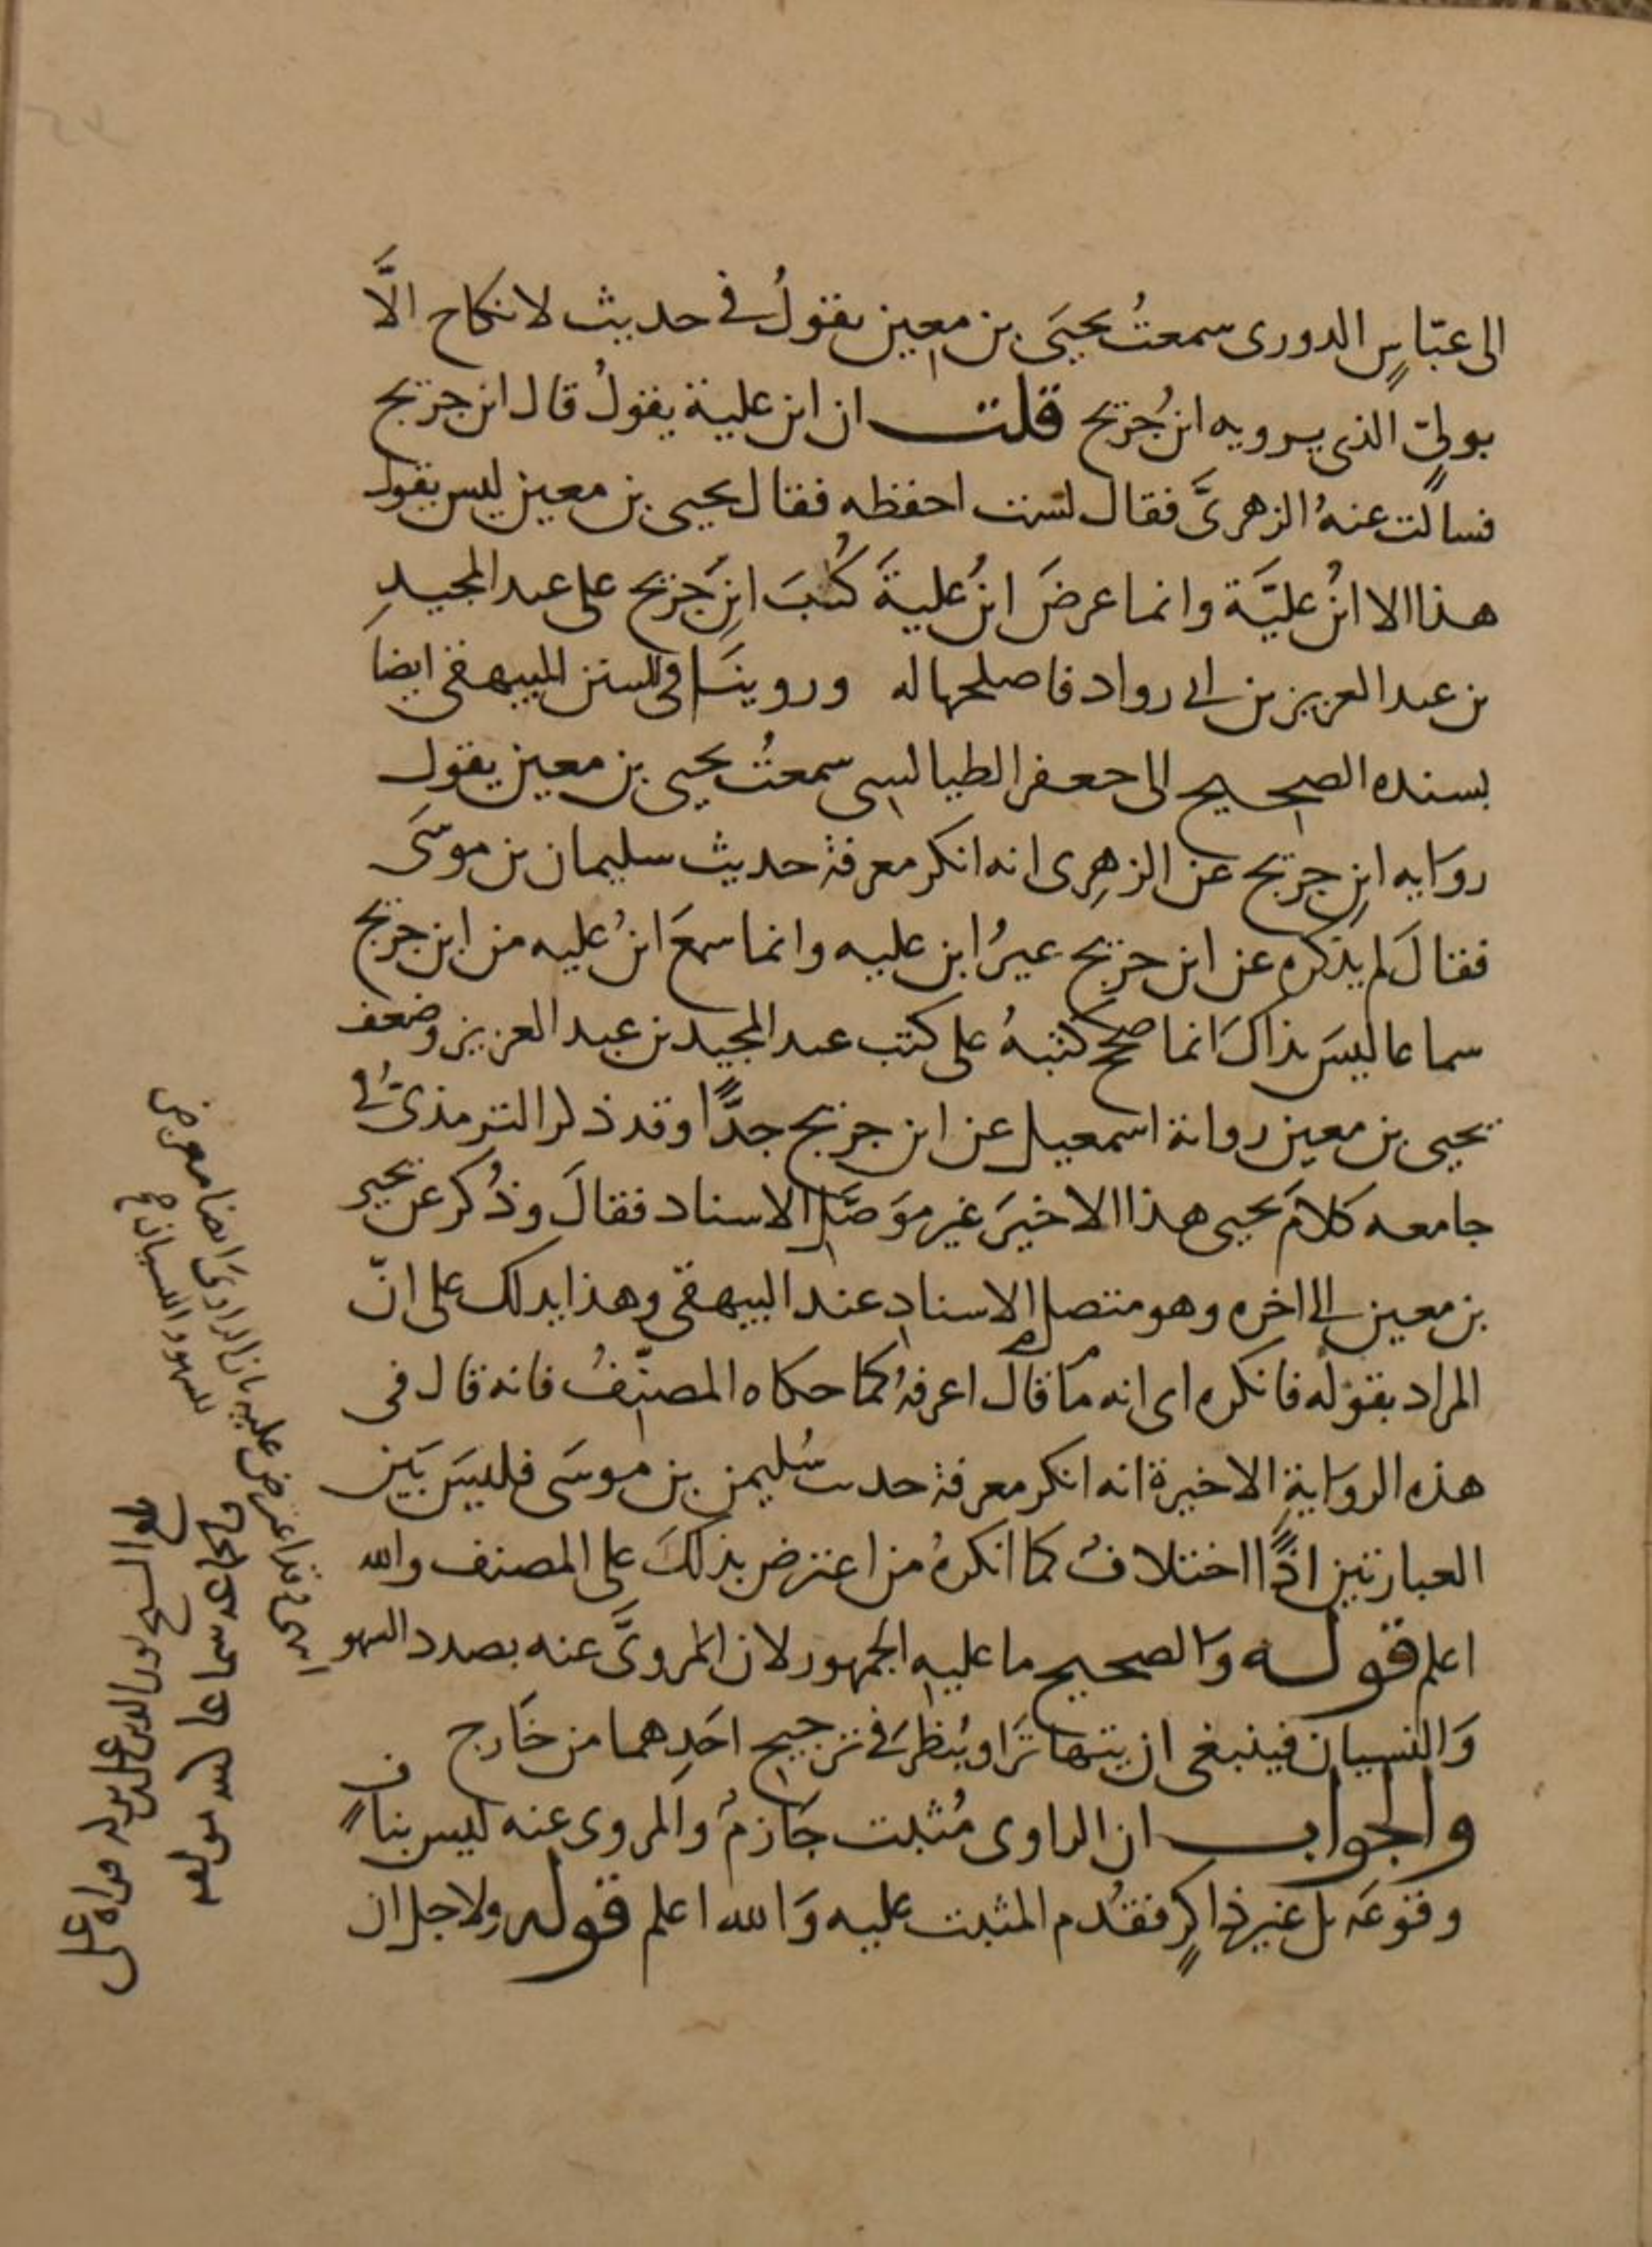 الى عبّاسٍ الدورى سمعتُ يحيَى بن معين يقولُ فى حديث لا نكاح الَّا
بولىٍّ الذى يرويه ابنُ جُريج قلت ان ابن علية يقولُ قال ابن جريج
فسالت عنهُ الزهرىَّ فقال لست احفظه فقال يحيى بن معين ليس يقول
هذا الا ابنُ عليَّة وانما عرضَ ابنُ عليةَ كُتُبَ ابنِ جُريج على عبد المجيدِ
بن عبد العزيز بن ابى رواد فاصلحها له وروينَا فى السنن للبيهقى ايضا
بسنده الصحيح الى جعفر الطيالسى سمعتُ يحيى بن معين يقول
روَايه ابنِ جريج عن الزهرِى انه انكر معرفة حديث سليمان بن موسَى
فقالَ لم يذكره عن ابن جريج غيرُ ابن عليه وانما سمعَ ابنُ عليه من ابن جريج
سماعا ليسَ بذاكَ انما صحح كتبهُ على كتب عبد المجيد بن عبد العزيز وضعف
يحيى بن معين رواية اسمعيل عن ابن جريج جدًّا وقد ذكر الترمذىُّ فى
جامعه كلامَ يحيى هذا الاخيرَ غير موَصَّلِ الاسناد فقالَ وذُكر عن يحيى
بن معين الى اخره وهو متصل الاسنادِ عند البيهقى وهذا يدلك على انّ
المراد بقوْله فانكره اى انه مَا قال اعرفهُ كما حكاه المصنّفُ فانه قال فى
هذه الروَايةِ الاخيرة انه انكر معرفة حديث سُليمن بن موسَى فليسَ بَين
العبارتين اذًا اختلافٌ كما انكرهُ من اعترض بذلكَ على المصنف والله
اعلم قوله وَالصحيح ما عليه الجمهور لان المروىَّ عنه بصدد السهو
وَالنسيان فينبغى ان يتهاترَا ويُنظرَ فى ترجيح احَدِهما من خَارج
والجواب ان الراوى مُثبت جَازمٌ والمروى عنه ليس بنافٍ
وقوعَه بل غير ذاكرٍ فقُدم المثبت عليه وَالله اعلم قوله ولاجل ان
بان الراوىَ ايضا معرض
للسهو والنسيان